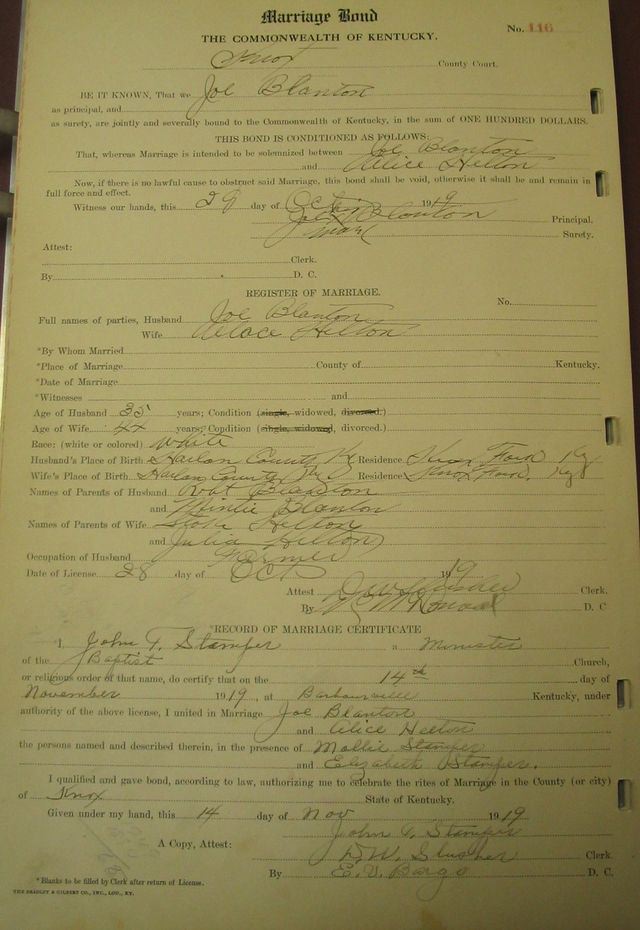 Marriage Bond
No. 116
THE COMMONWEALTH OF KENTUCKY.
Knox County Court.
BE IT KNOWN, That we Joe Blanton
as principal, and
as surety, are jointly and severally bound to the Commonwealth of Kentucky, in the sum of ONE HUNDRED DOLLARS.
THIS BOND IS CONDITIONED AS FOLLOWS:
That, whereas Marriage is intended to be solemnized between Joe Blanton
and Alice Helton
Now, if there is no lawful cause to obstruct said Marriage, this bond shall be void, otherwise it shall be and remain in
full force and effect.
Witness our hands, this 29 day of Oct 1919
Joe Blanton Principal.
Surety.
Attest:
Clerk.
By D. C.
REGISTER OF MARRIAGE.
No.
Full names of parties, Husband Joe Blanton
Wife Helton
*By Whom Married
*Place of Marriage County of Kentucky.
*Date of Marriage
*Witnesses and
Age of Husband 35 years; Condition (single, widowed, divorced.)
Age of Wife 44 years; Condition (single, widowed, divorced.)
Race: (white or colored) White
Husband's Place of Birth Harlan County Ky Residence Knox Ford Ky
Wife's Place of Birth Harlan County Residence Knox Ford. Ky
Names of Parents of Husband Robt Blanton
and Blanton
Names of Parents of Wife Helton
and Julia Helton
Occupation of Husband Farmer
Date of License 28 day of Oct 1919
Attest Clerk.
By D. C
RECORD OF MARRIAGE CERTIFICATE
I, John T. Stamper a Minister
of the Baptist Church,
or religious order of that name, do certify that on the 14th day of
November 1919, at Barbourville Kentucky, under
authority of the above license, I united in Marriage Joe Blanton
and Alice Helton
the persons named and described therein, in the presence of Mollie Stamper
and Elizabeth Stamper.
I qualified and gave bond, according to law, authorizing me to celebrate the rites of Marriage in the County (or city)
of Knox State of Kentucky.
Given under my hand, this 14 day of Nov 1919
John T. Stamper
A Copy, Attest: D.W. Slusher Clerk.
By E. V. Bargo D. C.
*Blanks to be filled by Clerk after return of License.
THE BRADLEY & GILBERT CO., INC., LOU., KY.